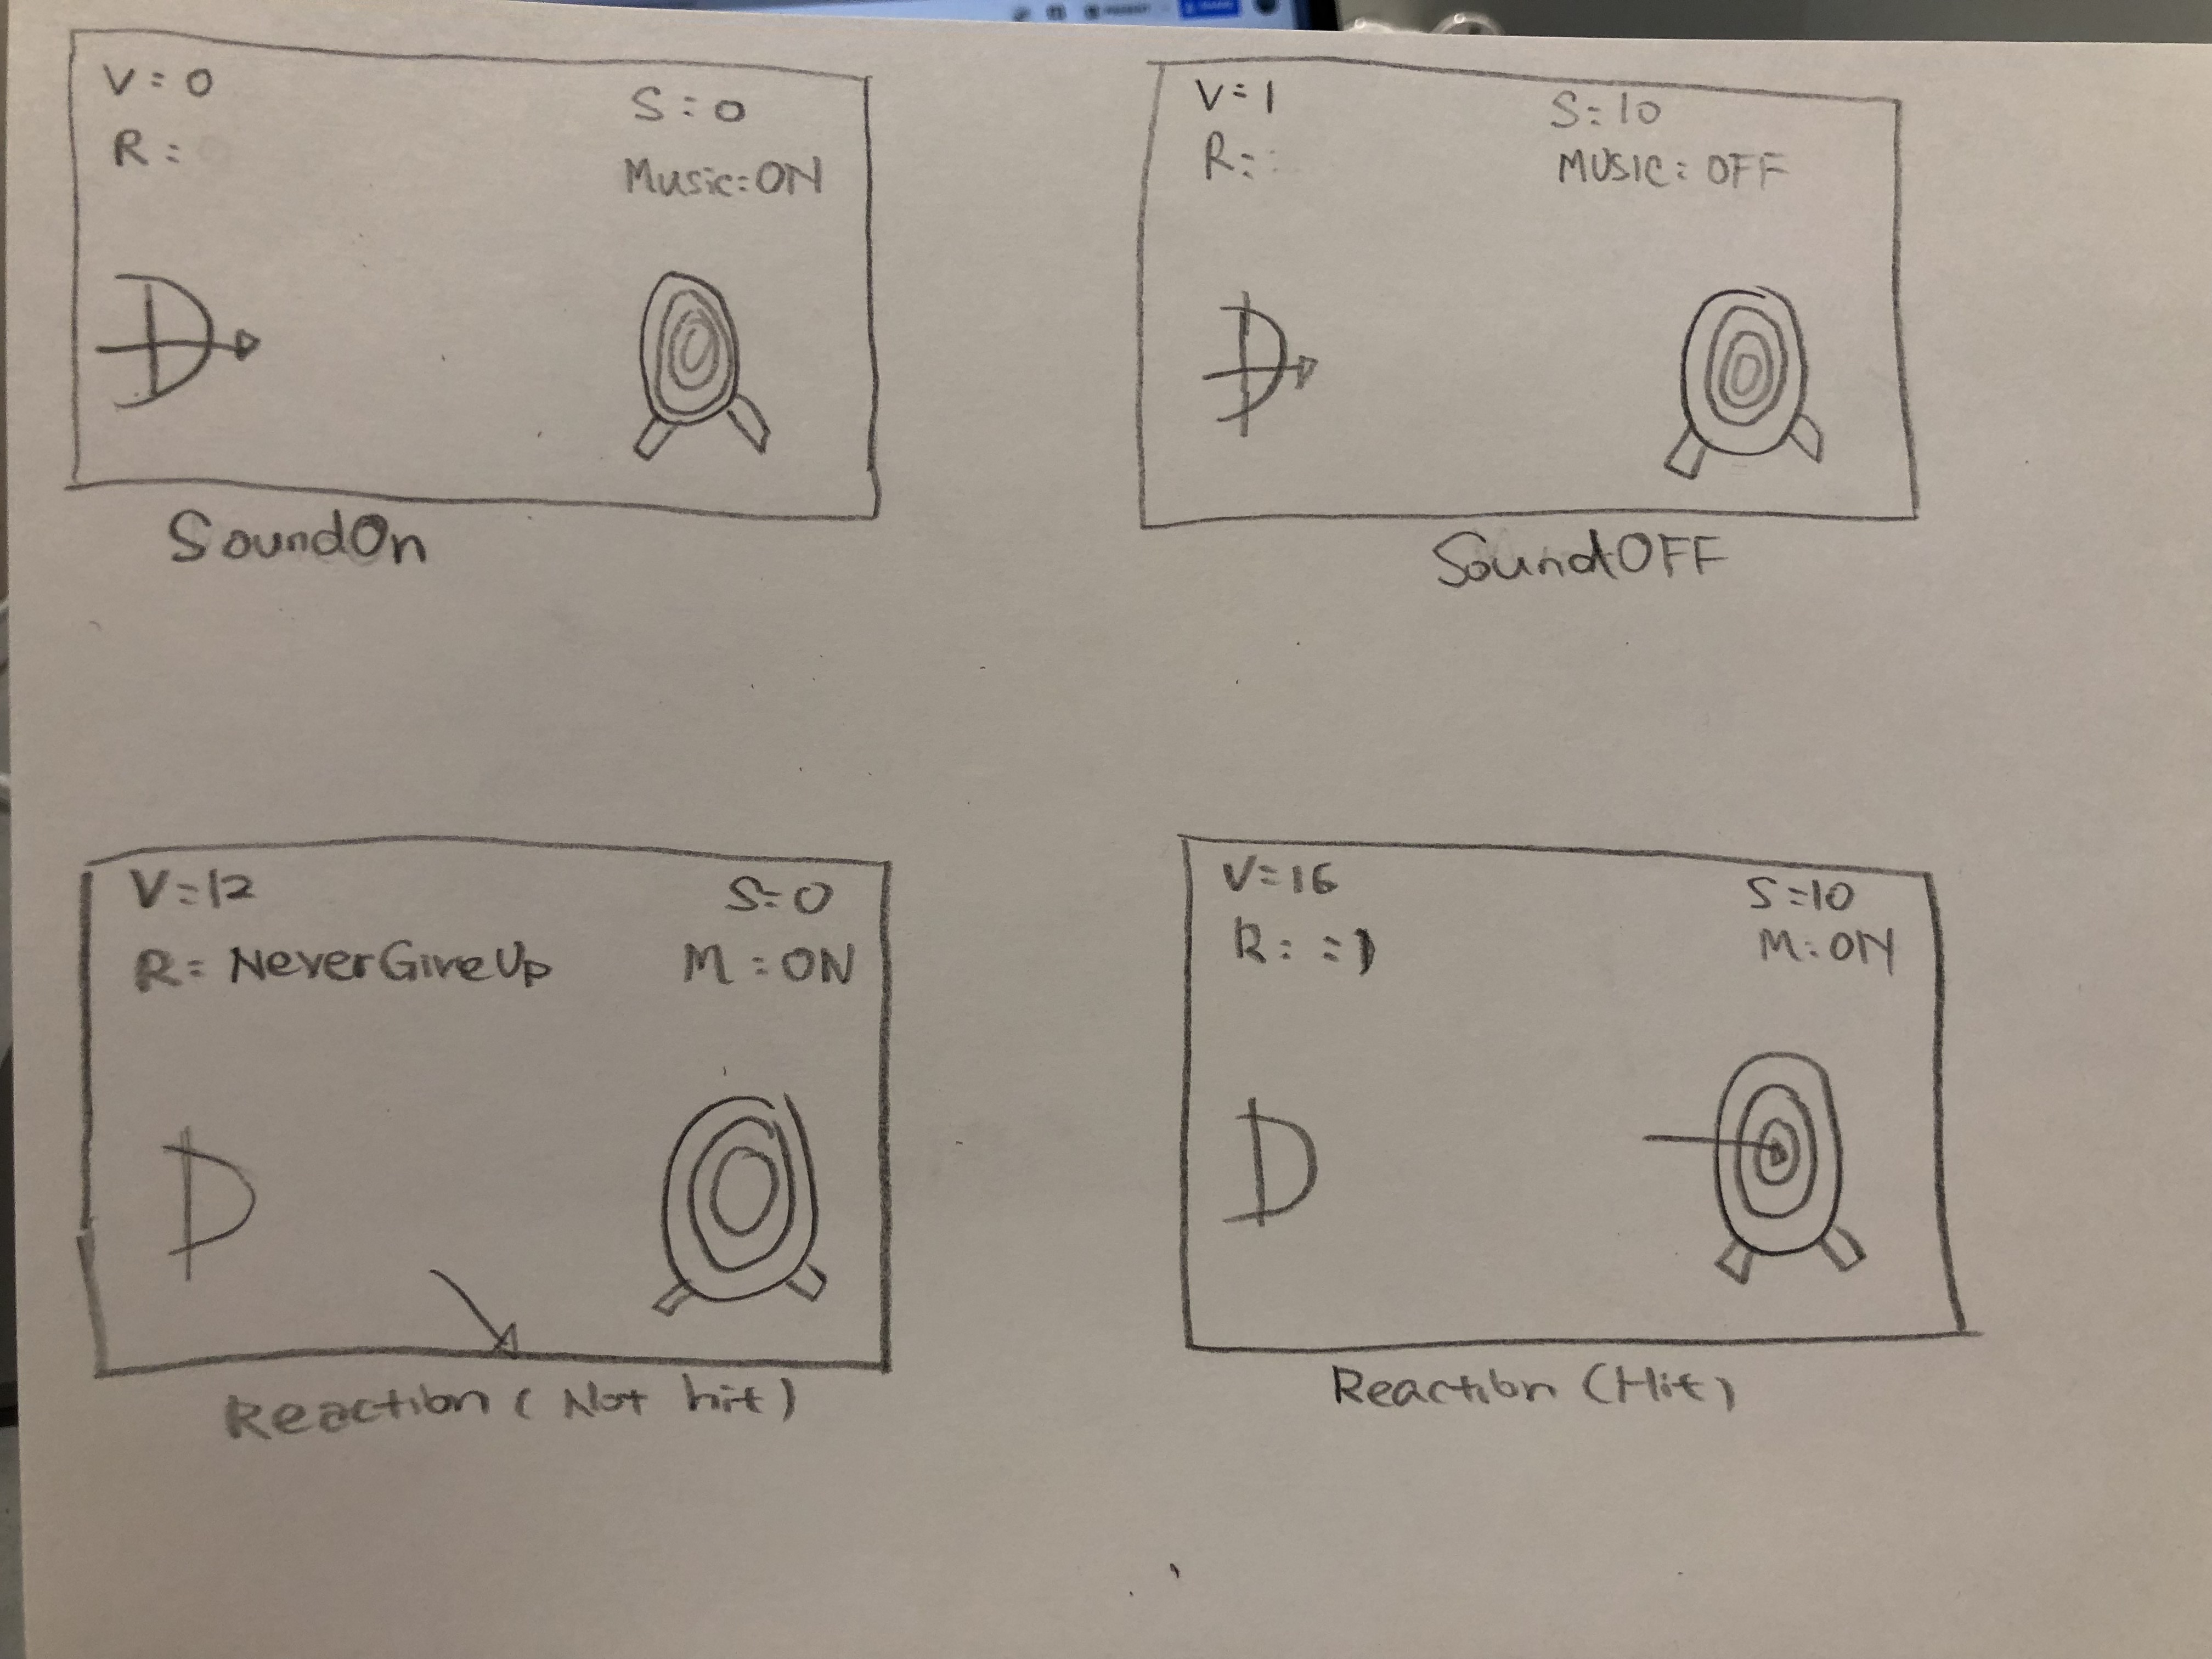 V = 0
S = 0
R =
Music = ON
SoundOn
V = 1
S = 10
R =
MUSIC = OFF
SoundOFF
V = 12
S = 0
R = NeverGiveUp
M = ON
Reaction (Not hit)
V = 16
S = 10
R = =)
M = ON
Reaction (Hit)